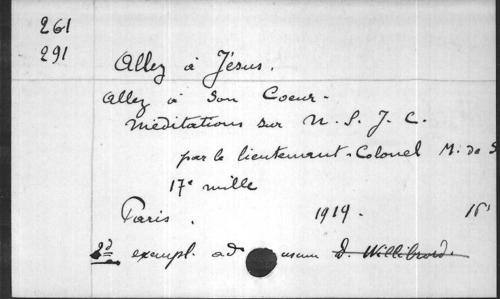 261
291
Allez à Jésus.
Allez à Son Coeur.
Méditations sur N. S. J. C.
par le lieutenant-Colonel M. de S
17e mille
Paris. 1919. 16°
2d exempl. ad usum D. Willibrord.